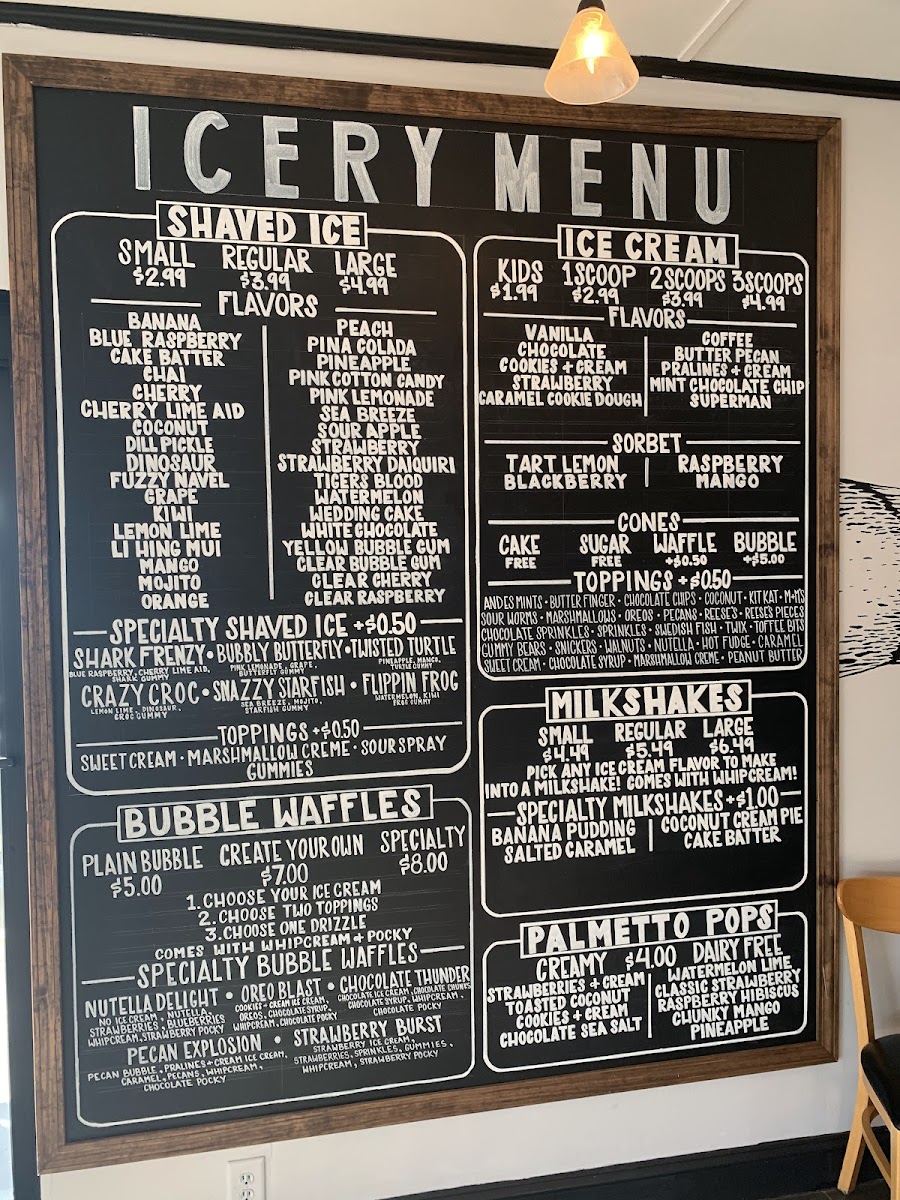 ICERY MENU
SHAVED ICE
SMALL REGULAR LARGE
$2.99 $3.99 $4.99
FLAVORS
BANANA
BLUE RASPBERRY
CAKE BATTER
CHAI
CHERRY
CHERRY LIME AID
COCONUT
DILL PICKLE
DINOSAUR
FUZZY NAVEL
GRAPE
KIWI
LEMON LIME
LI HING MUI
MANGO
MOJITO
ORANGE
PEACH
PINA COLADA
PINEAPPLE
PINK COTTON CANDY
PINK LEMONADE
SEA BREEZE
SOUR APPLE
STRAWBERRY
STRAWBERRY DAIQUIRI
TIGERS BLOOD
WATERMELON
WEDDING CAKE
WHITE CHOCOLATE
YELLOW BUBBLE GUM
CLEAR BUBBLE GUM
CLEAR CHERRY
CLEAR RASPBERRY
SPECIALTY SHAVED ICE +$0.50
SHARK FRENZY • BUBBLY BUTTERFLY • TWISTED TURTLE
BLUE RASPBERRY, CHERRY LIME AID,
SHARK GUMMY
PINK LEMONADE, GRAPE,
BUTTERFLY GUMMY
PINEAPPLE, MANGO,
TURTLE GUMMY
CRAZY CROC • SNAZZY STARFISH • FLIPPIN FROG
LEMON LIME, DINOSAUR,
CROC GUMMY
SEA BREEZE, MOJITO,
STARFISH GUMMY
WATERMELON, KIWI
FROG GUMMY
TOPPINGS +$0.50
SWEET CREAM • MARSHMALLOW CREME • SOUR SPRAY
GUMMIES
BUBBLE WAFFLES
PLAIN BUBBLE CREATE YOUR OWN SPECIALTY
$5.00 $7.00 $8.00
1. CHOOSE YOUR ICE CREAM
2. CHOOSE TWO TOPPINGS
3. CHOOSE ONE DRIZZLE
COMES WITH WHIPCREAM + POCKY
SPECIALTY BUBBLE WAFFLES
NUTELLA DELIGHT • OREO BLAST • CHOCOLATE THUNDER
NO ICE CREAM, NUTELLA,
STRAWBERRIES, BLUEBERRIES
WHIPCREAM, STRAWBERRY POCKY
COOKIES + CREAM ICE CREAM,
OREOS, CHOCOLATE SYRUP,
WHIPCREAM, CHOCOLATE POCKY
CHOCOLATE ICE CREAM, CHOCOLATE CHUNKS
CHOCOLATE SYRUP, WHIPCREAM,
CHOCOLATE POCKY
PECAN EXPLOSION • STRAWBERRY BURST
PECAN BUBBLE, PRALINES + CREAM ICE CREAM,
CARAMEL, PECANS, WHIPCREAM,
CHOCOLATE POCKY
STRAWBERRY ICE CREAM,
STRAWBERRIES, SPRINKLES, GUMMIES,
WHIPCREAM, STRAWBERRY POCKY
ICE CREAM
KIDS 1 SCOOP 2 SCOOPS 3 SCOOPS
$1.99 $2.99 $3.99 $4.99
FLAVORS
VANILLA
CHOCOLATE
COOKIES + CREAM
STRAWBERRY
CARAMEL COOKIE DOUGH
COFFEE
BUTTER PECAN
PRALINES + CREAM
MINT CHOCOLATE CHIP
SUPERMAN
SORBET
TART LEMON
BLACKBERRY
RASPBERRY
MANGO
CONES
CAKE SUGAR WAFFLE BUBBLE
FREE FREE +$0.50 +$5.00
TOPPINGS +$0.50
ANDES MINTS • BUTTERFINGER • CHOCOLATE CHIPS • COCONUT • KIT KAT • M+MS
SOUR WORMS • MARSHMALLOWS • OREOS • PECANS • REESE'S • REESE'S PIECES
CHOCOLATE SPRINKLES • SPRINKLES • SWEDISH FISH • TWIX • TOFFEE BITS
GUMMY BEARS • SNICKERS • WALNUTS • NUTELLA • HOT FUDGE • CARAMEL
SWEET CREAM • CHOCOLATE SYRUP • MARSHMALLOW CREME • PEANUT BUTTER
MILKSHAKES
SMALL REGULAR LARGE
$4.49 $5.49 $6.49
PICK ANY ICE CREAM FLAVOR TO MAKE
INTO A MILKSHAKE! COMES WITH WHIPCREAM!
SPECIALTY MILKSHAKES +$1.00
BANANA PUDDING
SALTED CARAMEL
COCONUT CREAM PIE
CAKE BATTER
PALMETTO POPS
CREAMY $4.00 DAIRY FREE
STRAWBERRIES + CREAM
TOASTED COCONUT
COOKIES + CREAM
CHOCOLATE SEA SALT
WATERMELON LIME
CLASSIC STRAWBERRY
RASPBERRY HIBISCUS
CHUNKY MANGO
PINEAPPLE